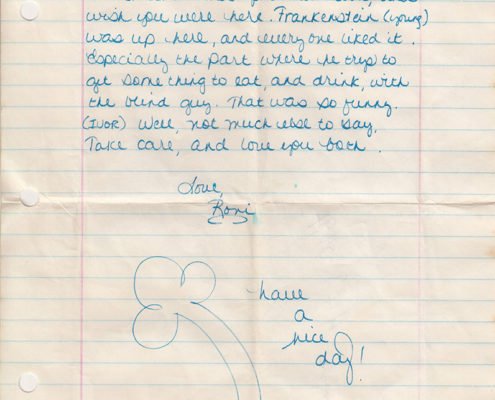 wish you were here. Frankenstein (young)
was up here, and everyone liked it.
Especially the part where he trys to
get some thing to eat, and drink, with
the blind guy. That was so funny.
(IVOR) Well, not much else to say.
Take care, and love you both.
Love,
Roni
have
a
nice
day!